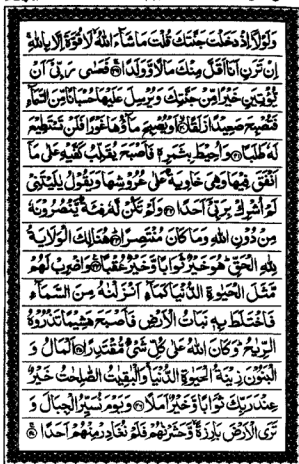 وَلَوْلَا إِذْ دَخَلْتَ جَنَّتَكَ قُلْتَ مَا شَاءَ اللَّهُ لَا قُوَّةَ إِلَّا بِاللَّهِ
إِنْ تَرَنِ أَنَا أَقَلَّ مِنْكَ مَالًا وَوَلَدًا ۝ فَعَسَى رَبِّي أَنْ
يُؤْتِيَنِ خَيْرًا مِنْ جَنَّتِكَ وَيُرْسِلَ عَلَيْهَا حُسْبَانًا مِنَ السَّمَاءِ
فَتُصْبِحَ صَعِيدًا زَلَقًا ۝ أَوْ يُصْبِحَ مَاؤُهَا غَوْرًا فَلَنْ تَسْتَطِيعَ
لَهُ طَلَبًا ۝ وَأُحِيطَ بِثَمَرِهِ فَأَصْبَحَ يُقَلِّبُ كَفَّيْهِ عَلَى مَا
أَنْفَقَ فِيهَا وَهِيَ خَاوِيَةٌ عَلَى عُرُوشِهَا وَيَقُولُ يَالَيْتَنِي
لَمْ أُشْرِكْ بِرَبِّي أَحَدًا ۝ وَلَمْ تَكُنْ لَهُ فِئَةٌ يَنْصُرُونَهُ
مِنْ دُونِ اللَّهِ وَمَا كَانَ مُنْتَصِرًا ۝ هُنَالِكَ الْوَلَايَةُ
لِلَّهِ الْحَقِّ هُوَ خَيْرٌ ثَوَابًا وَخَيْرٌ عُقْبًا ۝ وَاضْرِبْ لَهُمْ
مَثَلَ الْحَيَوةِ الدُّنْيَا كَمَاءٍ أَنْزَلْنَاهُ مِنَ السَّمَاءِ
فَاخْتَلَطَ بِهِ نَبَاتُ الْأَرْضِ فَأَصْبَحَ هَشِيمًا تَذْرُوهُ
الرِّيَاحُ وَكَانَ اللَّهُ عَلَى كُلِّ شَيْءٍ مُقْتَدِرًا ۝ الْمَالُ وَ
الْبَنُونَ زِينَةُ الْحَيَوةِ الدُّنْيَا وَالْبَاقِيَاتُ الصَّالِحَاتُ خَيْرٌ
عِنْدَ رَبِّكَ ثَوَابًا وَخَيْرٌ أَمَلًا ۝ وَيَوْمَ نُسَيِّرُ الْجِبَالَ وَ
تَرَى الْأَرْضَ بَارِزَةً وَحَشَرْنَاهُمْ فَلَمْ نُغَادِرْ مِنْهُمْ أَحَدًا ۝